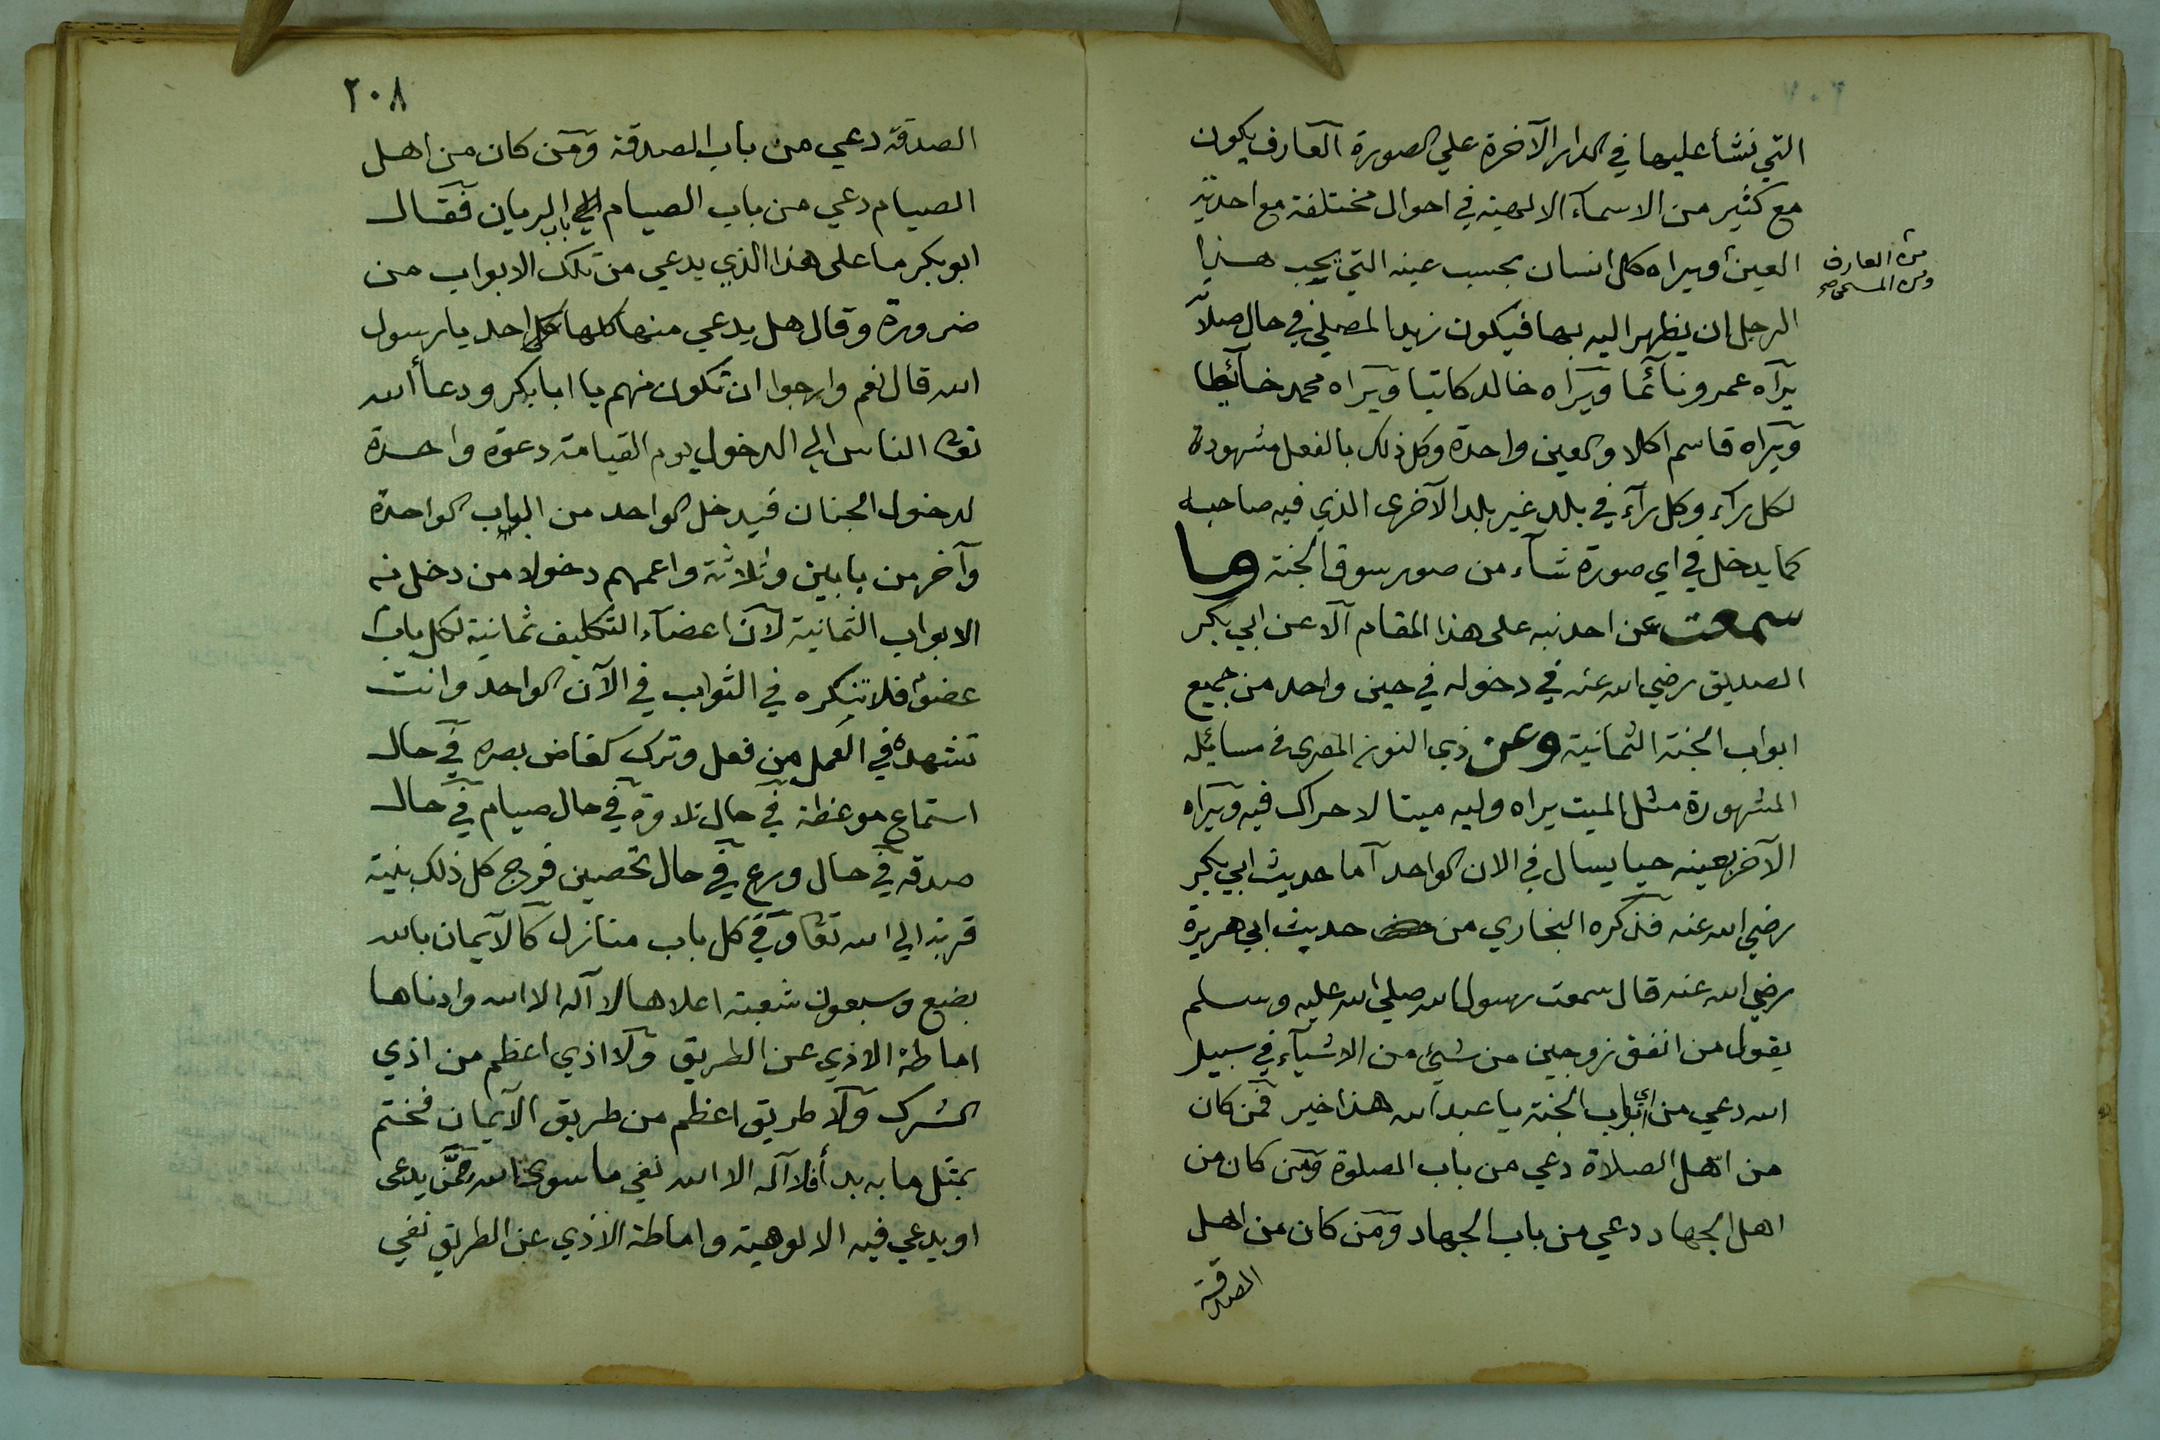 التي نشأ عليها في الدار الآخرة علي الصورة العارف يكون
مع كثير من الاسمآء الالهية في احوال مختلفة مع احدية
العين ويراه كل انسان بحسب عينه التي يجب هذا
العارف
الرجل ان يظهر اليه بها فيكون زيدا لمصلي في حال صلا
يرآه عمرو نآئما ويراه خالد كاتبا ويراه محمد خآئطا
ويراه قاسم اكلا والعين واحدة وكل ذلك بالفعل مشهودة
لكل رآء وكل رآء في بلد غير بلد الآخر الذي فيه صاحبه
كما يدخل في اي صورة شآء من صور سوق الجنة وما
سمعت عن احد نبه على هذا المقام الا عن ابي بكر
الصديق رضي الله عنه في دخوله في حين واحد من جميع
ابواب الجنة الثمانية وعن ذي النون المصري في مسائله
المشهورة مثل الميت يراه وليه ميتا لا حراك فيه ويراه
الآخر بعينه حيا يسال في الان الواحد اما حديث ابي بكر
رضي الله عنه فذكره البخاري من حديث ابي هريرة
رضي الله عنه قال سمعت رسول الله صلي الله عليه وسلم
يقول من انفق زوجين من شيئ من الاشيآء في سبيل
الله دعي من ابواب الجنة يا عبد الله هذا خير فمن كان
من اهل الصلاة دعي من باب الصلوة ومن كان من
اهل الجهاد دعي من باب الجهاد ومن كان من اهل
الصدقة
٢٠٨
الصدقة دعي من باب الصدقة ومن كان من اهل
الصيام دعي من باب الصيام باب الريان فقال
ابو بكر ما على هذا الذي يدعي من تلك الابواب من
ضرورة وقال هل يدعي منها كلها احد يا رسول
الله قال نعم وارجوا ان تكون منهم يا ابا بكر ودعأ الله
تعا الناس الي الدخول يوم القيامة دعوة واحدة
لدخول الجنان فيدخل الواحد من الباب الواحدة
وآخر من بابين وثلاثة واعمهم دخولا من دخل من
الابواب الثمانية لان اعضآء التكليف ثمانية لكل باب
عضو فلا تنكره في الثواب في الآن الواحد وانت
تشهده في العمل من فعل وترك كغاض بصره في حال
استماع موعظة في حال تلاوة في حال صيام في حال
صدقه في حال ورع في حال تحصين فرج كل ذلك بنية
قربة الي الله تعا وفي كل باب منازل كالايمان بالله
بضع وسبعون شعبة اعلاها لا اله الا الله وادناها
اماطة الاذي عن الطريق ولا اذي اعظم من اذي
الشرك ولا طريق اعظم من طريق الايمان فختم
بمثل ما به بدأ فلا اله الا الله نفي ما سوي الله ممن يدعى
او يدعي فيه الالوهية واماطة الاذي عن الطريق نفي